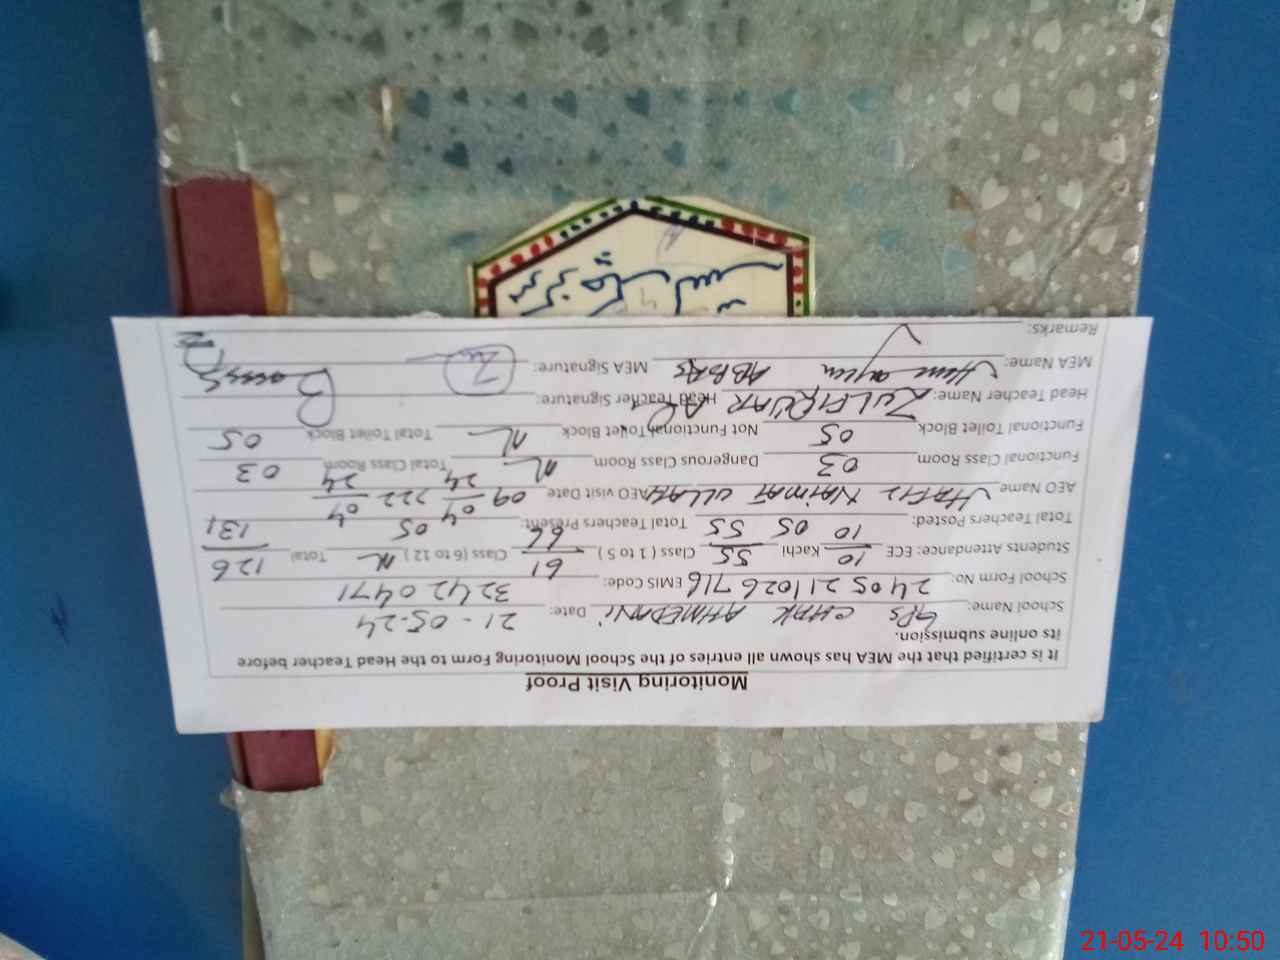 Monitoring Visit Proof
It is certified that the MEA has shown all entries of the School Monitoring Form to the Head Teacher before
its online submission.
School Name: GPS CHAK AHMEDANI Date: 21-05-24
School Form No: 2405211026716 EMIS Code: 32420471
Students Attendance: ECE: 10/10 Kachi 55/55 Class ( 1 to 5 ) 61/66 Class (6 to 12 ) N Total 126/131
Total Teachers Posted: 05 Total Teachers Present: 05
AEO Name HAFIZ NAIMAT ULLAH AEO visit Date 09/04/24 22/04/24
Functional Class Room 03 Dangerous Class Room N Total Class Room 03
Functional Toilet Block 05 Not Functional Toilet Block N Total Toilet Block 05
Head Teacher Name: ZULFIQUAR Head Teacher Signature:
MEA Name: ABBAS MEA Signature:
Remarks:
21-05-24 10:50